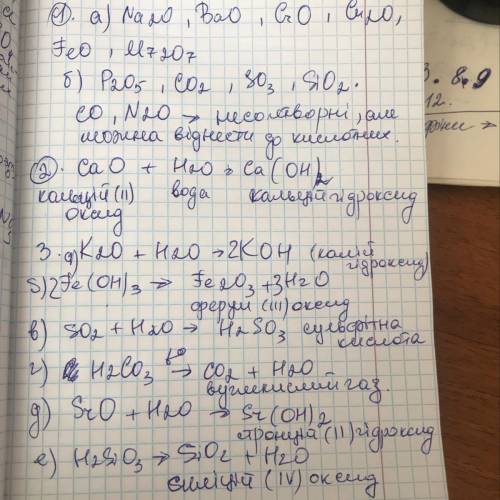 ①. а) Na2O, BaO, CrO, Cu2O,
FeO, M72O7
б) P2O5, CO2, SO3, SiO2.
CO, N2O → несолетворні, але
можна віднести до кислотних.
②. CaO + H2O → Ca(OH)2
кальцій (II) вода кальцій гідроксид
оксид
3. а) K2O + H2O → 2KOH (калій
гідроксид)
б) 2Fe(OH)3 → Fe2O3 + 3H2O
ферум (III) оксид
в) SO2 + H2O → H2SO3 сульфітна
кислота
г) H2CO3 t° → CO2 + H2O
вуглекислий газ.
д) SrO + H2O → Sr(OH)2
стронцій (II) гідроксид
е) H2SiO3 → SiO2 + H2O
силіцій (IV) оксид
3. 8.9
12.